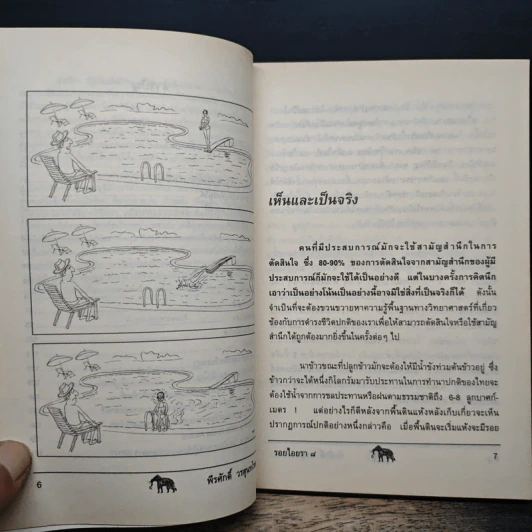 6
พีรศักดิ์
เห็นและเป็นจริง
คนที่มีประสบการณ์มักจะใช้สามัญสำนึกในการ
ตัดสินใจ ซึ่ง 80-90% ของการตัดสินใจจากสามัญสำนึกของผู้มี
ประสบการณ์ก็มักจะใช้ได้เป็นอย่างดี แต่ในบางครั้งการคิดนึก
เอาว่าเป็นอย่างโน้นเป็นอย่างนี้อาจมิใช่สิ่งที่เป็นจริงก็ได้ ดังนั้น
จำเป็นที่จะต้องขวนขวายหาความรู้พื้นฐานทางวิทยาศาสตร์ที่เกี่ยว
ข้องกับการดำรงชีวิตปกติของเราเพื่อให้สามารถตัดสินใจหรือใช้สามัญ
สำนึกได้ถูกต้องมากยิ่งขึ้นในครั้งต่อๆ ไป
นาข้าวขณะที่ปลูกข้าวมักจะต้องให้มีน้ำขังท่วมต้นข้าวอยู่ ซึ่ง
ข้าวกว่าจะได้หนึ่งกิโลกรัมมารับประทานในการทำนาปกติของไทยจะ
ต้องใช้น้ำจากการชลประทานหรือฝนตามธรรมชาติถึง 6-8 ลูกบาศก์-
เมตร ! แต่อย่างไรก็ดีหลังจากพื้นดินแห้งหลังเก็บเกี่ยวจะเห็น
ปรากฏการณ์ปกติอย่างหนึ่งกล่าวคือ เมื่อพื้นดินจะเริ่มแห้งจะมีรอย
รอยไอยรา ๘
7